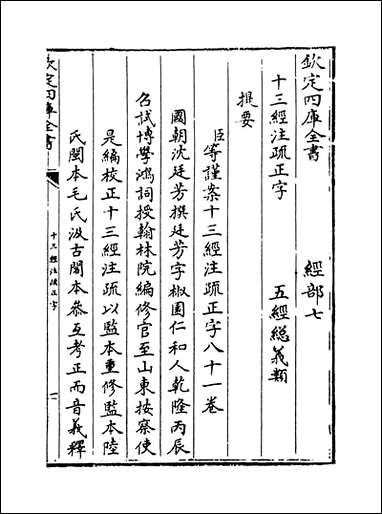 欽定四庫全書　經部七
十三經注疏正字　五經總義類
提要
臣等謹案十三經注疏正字八十一卷
國朝沈廷芳撰廷芳字椒園仁和人乾隆丙辰
召試博學鴻詞授翰林院編修官至山東按察使
是編校正十三經注疏以監本重修監本陸
氏閩本毛氏汲古閣本叅互考正而音義釋
欽定四庫全書
十三經注疏正字